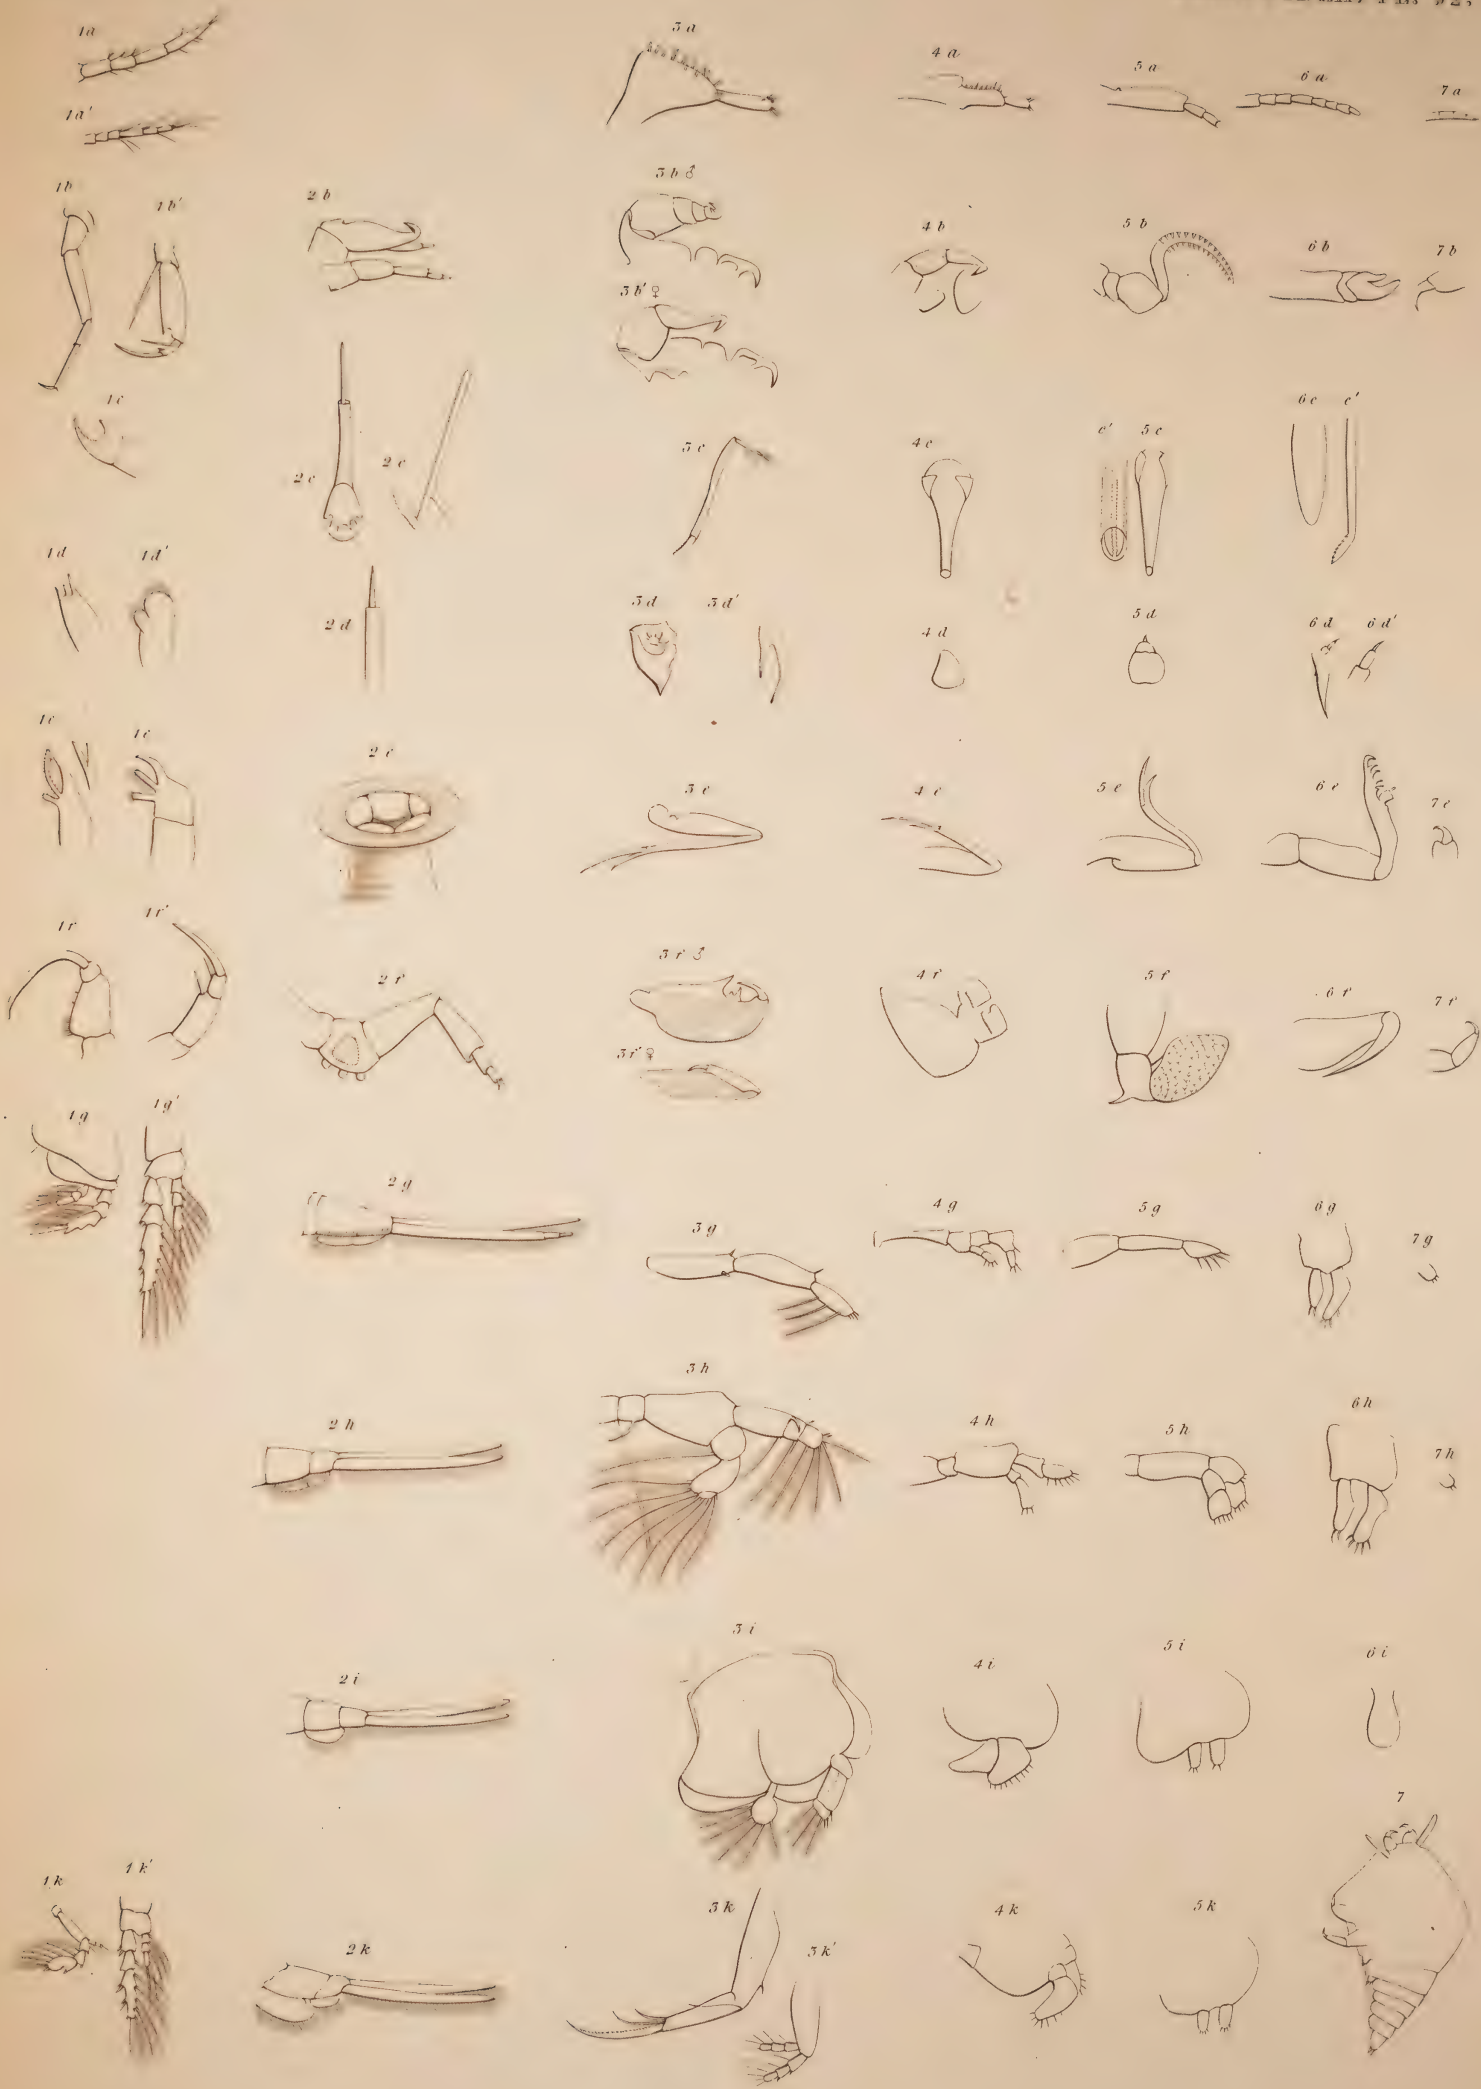 1a 3a 4a 5a 6a 7a
1a'
1b 1b' 2b 3b♂ 4b 5b 6b 7b
3b'♀
1c 2c 2c 3c 4c c' 5c 6c c'
1d 1d' 2d 3d 3d' 4d 5d 6d 6d'
1e 1e 2e 3e 4e 5e 6e 7e
1f 1f' 2f 3f♂ 4f 5f 6f 7f
3f'♀
1g 1g' 2g 3g 4g 5g 6g 7g
2h 3h 4h 5h 6h 7h
2i 3i 4i 5i 6i
7
1k 1k' 2k 3k 3k' 4k 5k